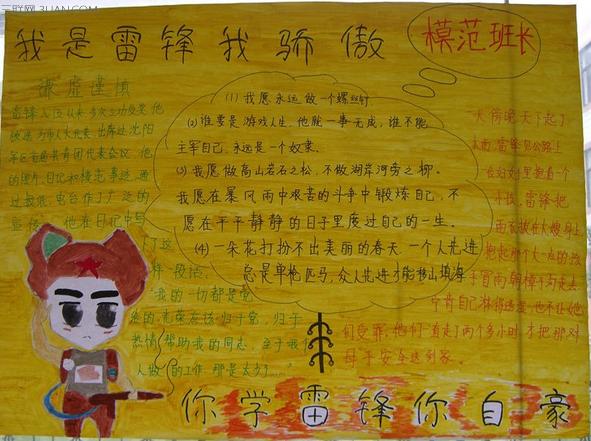 三联网 3LIAN.COM
我是雷锋我骄傲
模范班长
谦虚谨慎
雷锋入伍以来多次立功受奖他
被选为市人大代表 出席过沈阳
军区首届共青团代表会议 他
的照片、日记和模范事迹 通
过报纸 电台作了广泛的
宣传 他在日记中写
了这
件段话:
我的一切都是党
给的,光荣应该归于党,归于
热情帮助我的同志 至于我
个人做的工作 那是太少了……"
(1) 我愿永远做一个螺丝钉
(2)谁要是游戏人生,他就一事无成,谁不能
主宰自己,永远是一个奴隶。
(3)我愿做高山岩石之松,不做湖岸河旁之柳。
我愿在暴风雨中艰苦的斗争中锻炼自己,不
愿在平平静静的日子里度过自己的一生。
(4)一朵花打扮不出美丽的春天 一个人先进
总是单枪匹马,众人先进才能移山填海
天傍晚天下起了
大雨,雷锋见公路上
在妇女手里抱着一个
小孩,雷锋把
雨衣披在大嫂身上
抱起那个大一点的孩
子冒雨朝樟子沟走去
宁肯自己淋得透湿,也不让她
们受罪,他们一直走了两个多小时,才把那对
母子安全送到家。
你学雷锋你自豪